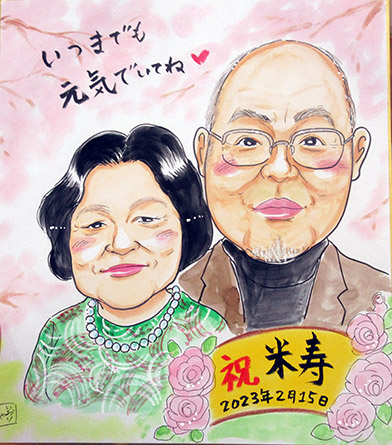 いつまでも
元気でいてね♥
祝 米寿
2023年2月15日